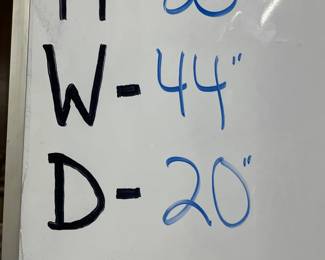 W- 44"
D- 20"